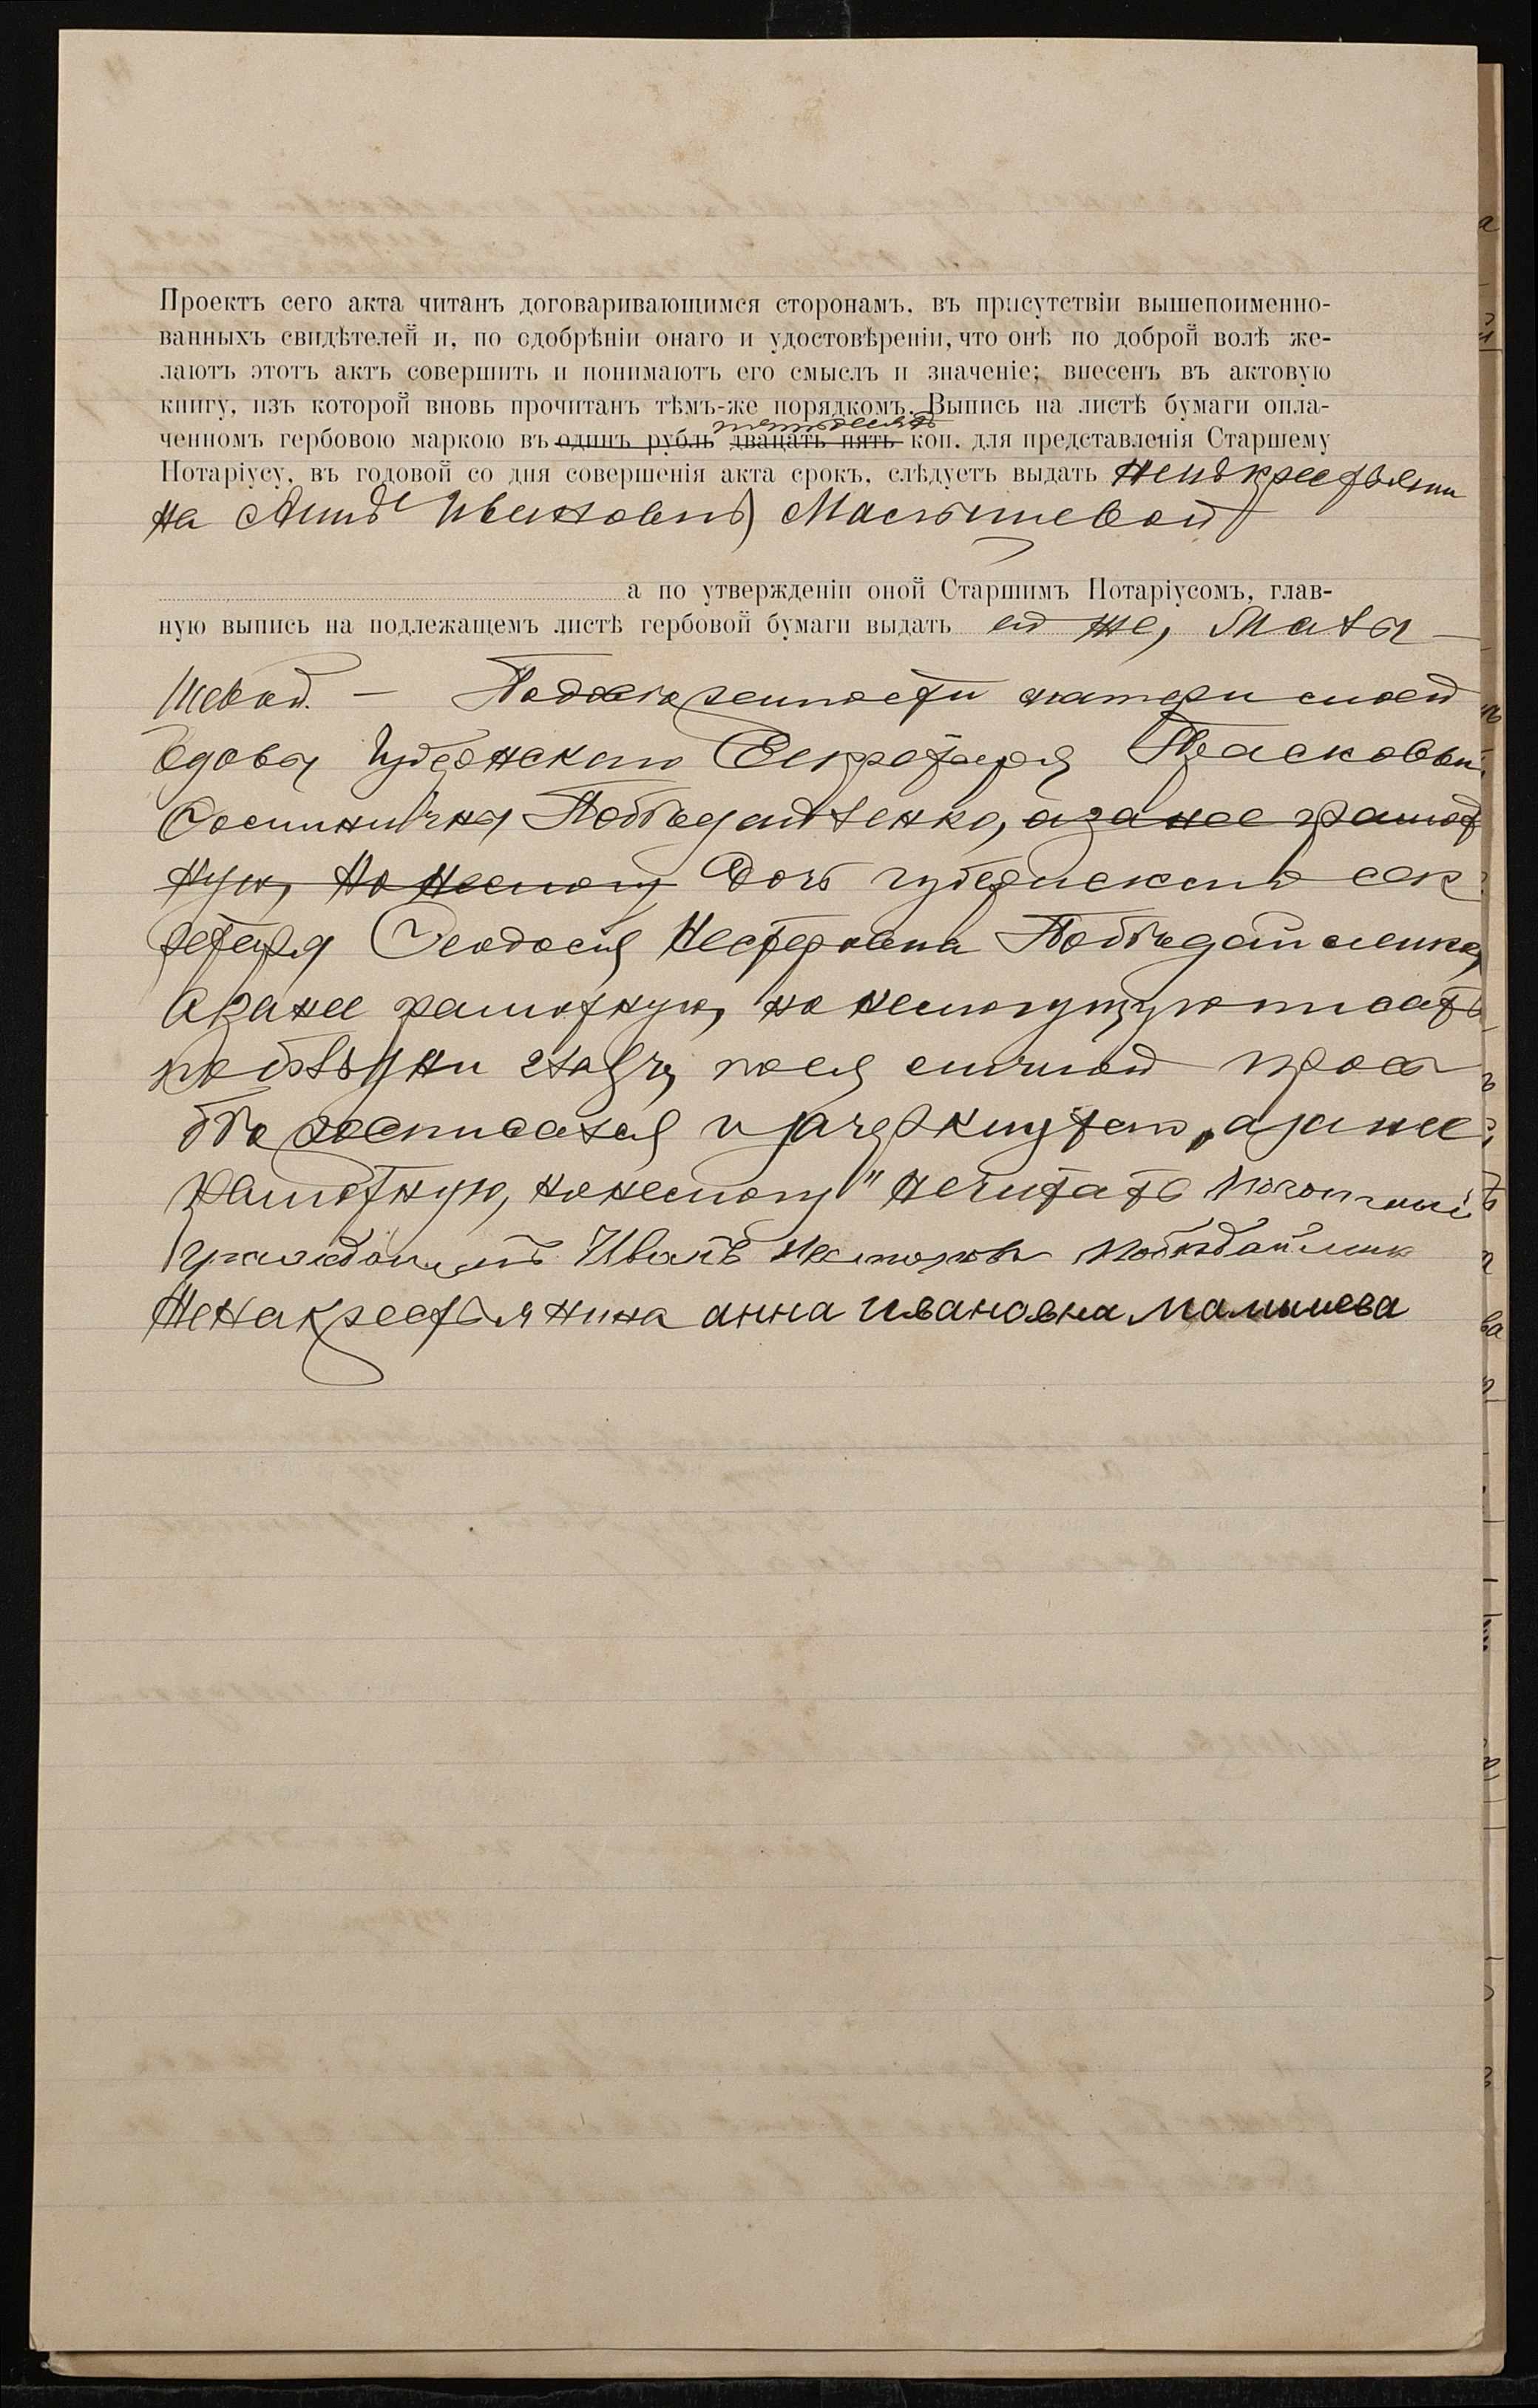 Проектъ сего акта читанъ договаривающимся сторонамъ, въ присутствіи вышепоименно-
ванныхъ свидѣтелей и, по одобрѣніи онаго и удостовѣреніи, что онѣ по доброй волѣ же-
лаютъ этотъ актъ совершить и понимаютъ его смыслъ и значеніе; внесенъ въ актовую
книгу, изъ которой вновь прочитанъ тѣмъ-же порядкомъ. Выпись на листѣ бумаги опла-
пятьдесятъ
ченномъ гербовою маркою въ одинъ рубль двацать пять коп. для представленія Старшему
Нотаріусу, въ годовой со дня совершенія акта срокъ, слѣдуетъ выдать женѣ крестьяни
на Аннѣ Ивановнѣ Малышевой
а по утвержденіи оной Старшимъ Нотаріусомъ, глав-
ную выпись на подлежащемъ листѣ гербовой бумаги выдать ей же, Малы-
шевой. — По матери своей
вдовы Губернскаго Секретаря Прасковьи
Побѣдайленко, а за нее грамот
ную, но немогу Дочь губернскаго сек
ретаря Ѳеодосія Нестеровна Побѣдайленко,
а за нее грамотную, но немогущую писать
по болѣзни глазъ, по ея личной прось
бѣ росписался и зачеркнутаго „а за нее
грамотную, но немогу" нечитать почотный
гражданинъ Иванъ Несторовъ Побѣдайленк
Жена крестьянина анна Ивановна Малышева